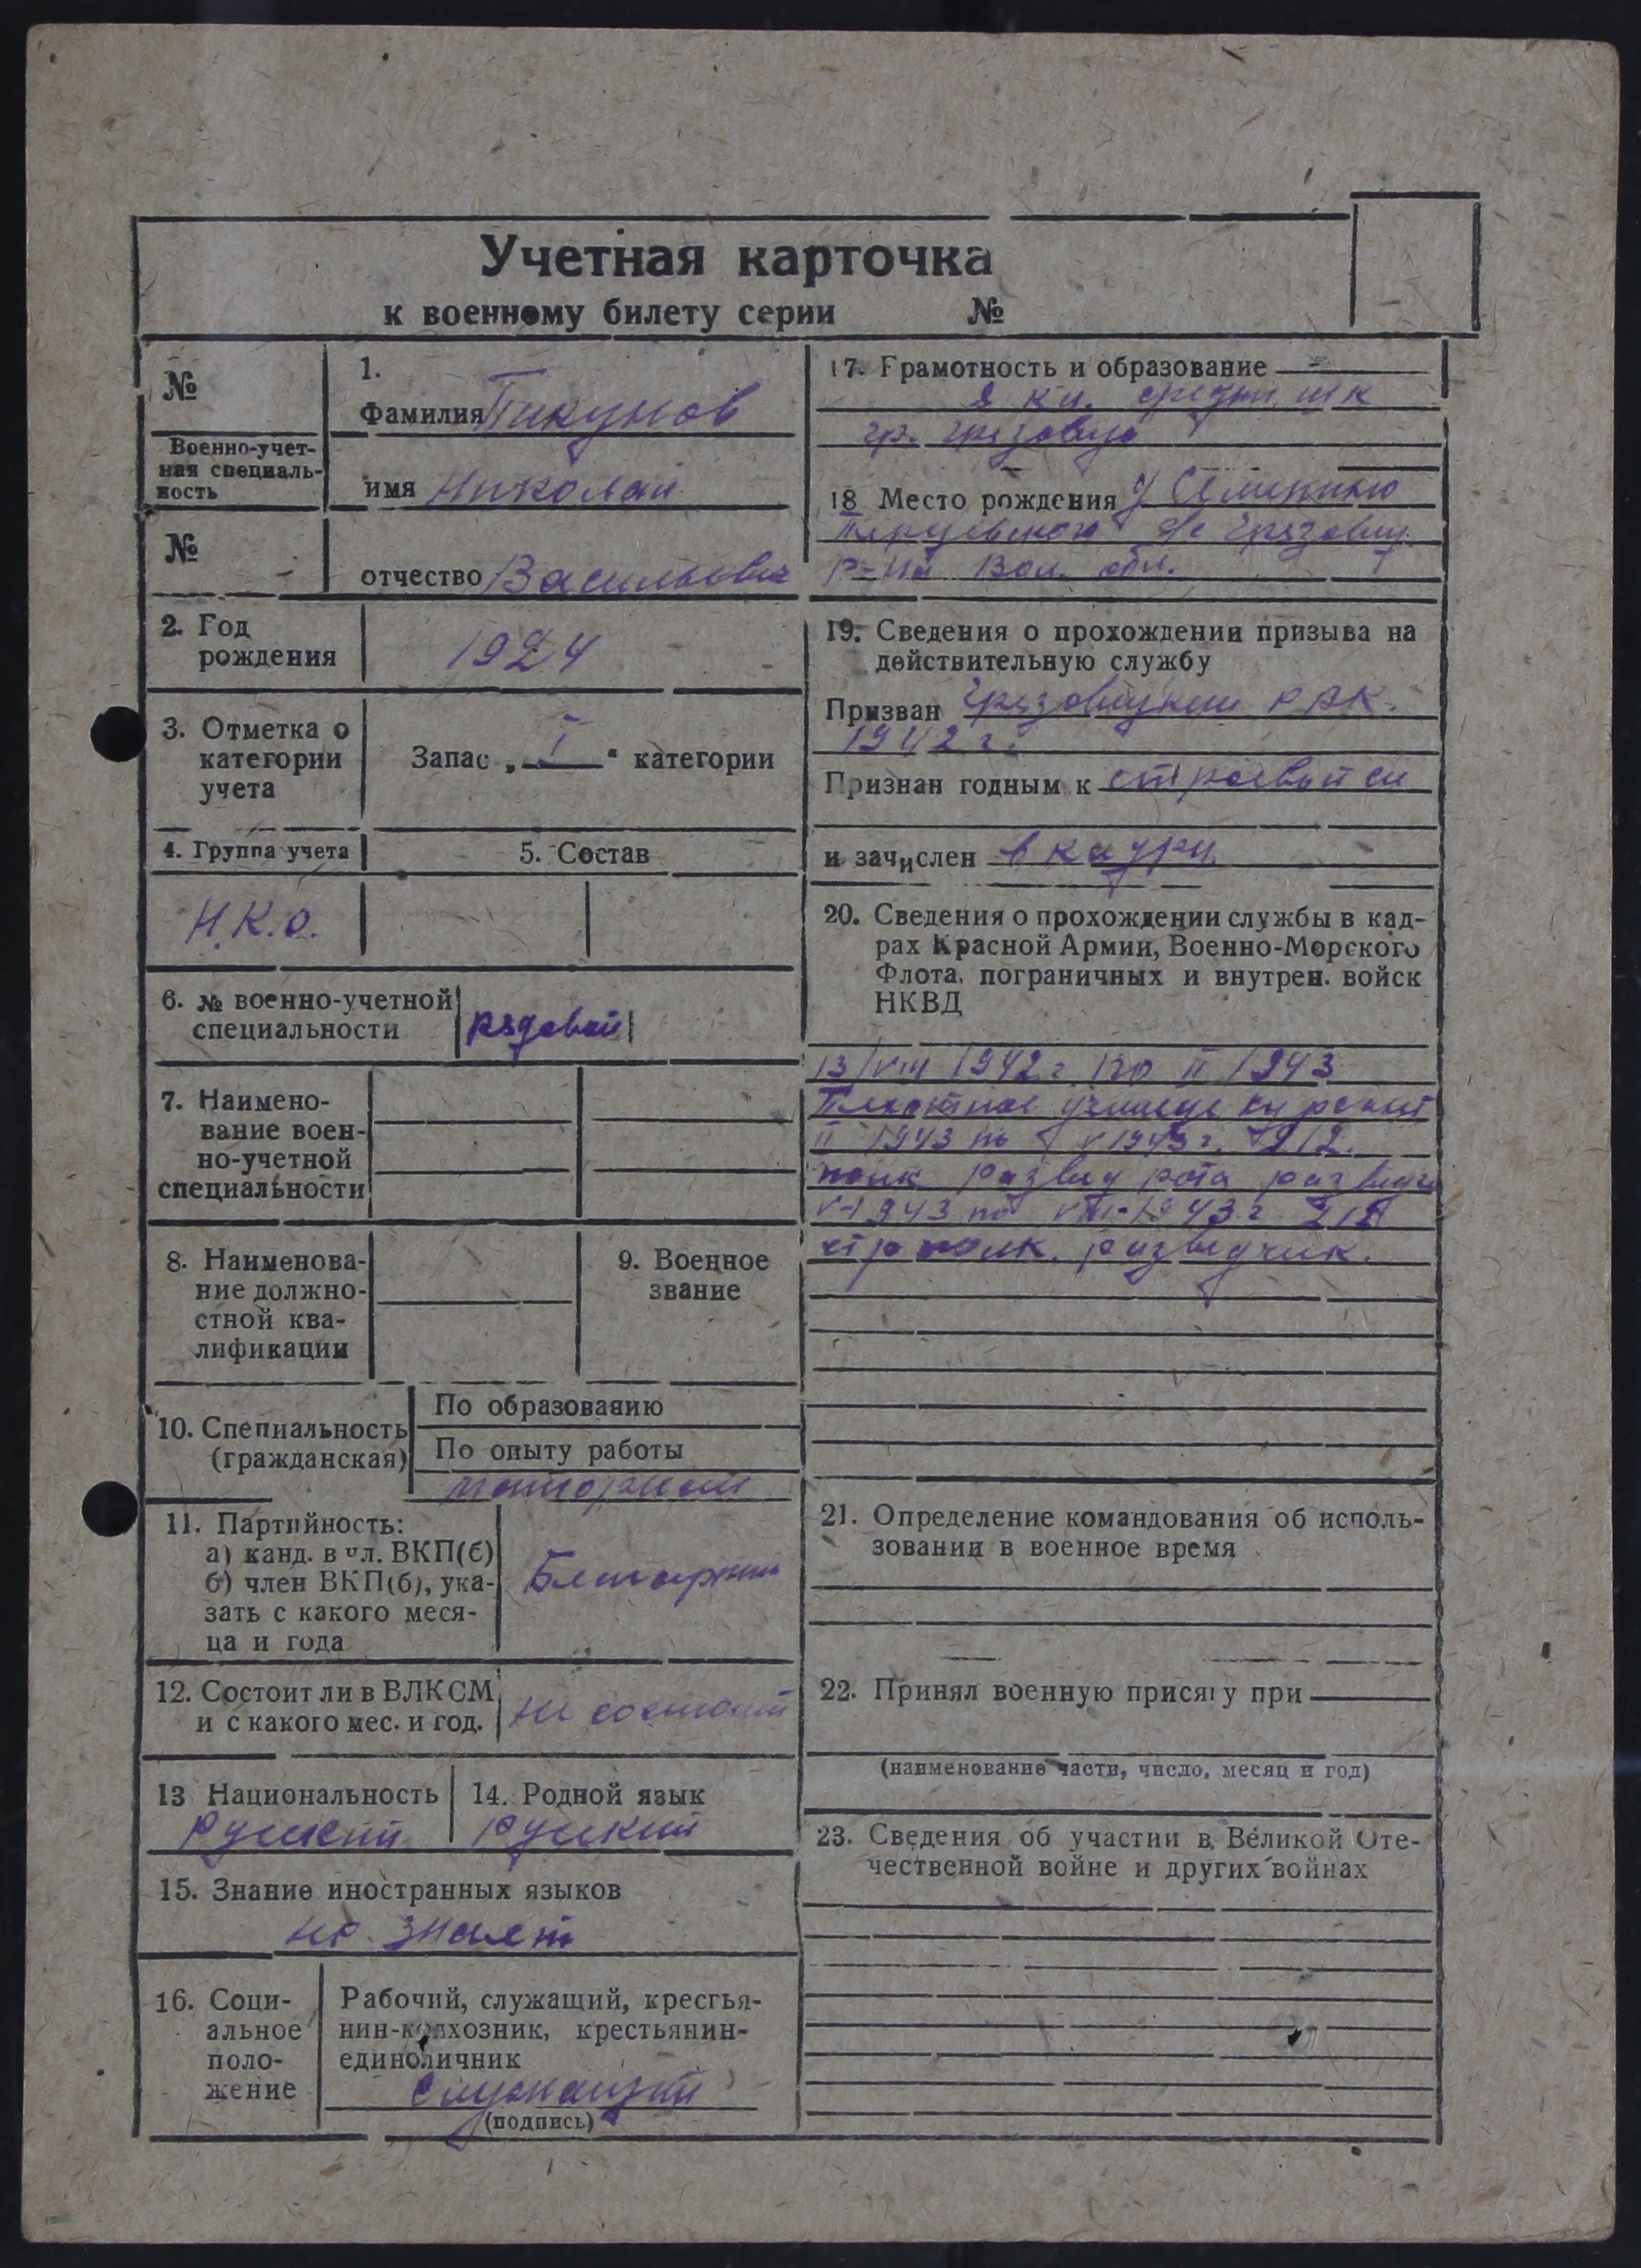 Учетная карточка
к военному билету серии №
№
Военно-учет-
ная специаль-
ность
№
1.
Фамилия Пикунов
имя Николай
отчество Васильевич
2. Год
рождения
1924
3. Отметка о
категории
учета
Запас „ I " категории
4. Группа учета
5. Состав
Н.К.О.
6. № военно-учетной
специальности
рядовой
7. Наимено-
вание воен-
но-учетной
специальности
8. Наименова-
ние должно-
стной ква-
лификации
9. Военное
звание
10. Специальность
(гражданская)
По образованию
По опыту работы
11. Партийность:
а) канд. в чл. ВКП(б)
б) член ВКП(б), ука-
зать с какого меся-
ца и года
12. Состоит ли в ВЛКСМ
и с какого мес. и год.
не состоит
13 Национальность
Русский
14. Родной язык
Русский
15. Знание иностранных языков
не знает
16. Соци-
альное
поло-
жение
Рабочий, служащий, крестья-
нин-колхозник, крестьянин-
единоличник
служащий
(подпись)
17. Грамотность и образование
8 кл. средн шк
гр. Грязовца
18 Место рождения д Семкино
с/с Грязовец.
р-на Вол. обл.
19. Сведения о прохождении призыва на
действительную службу
Призван Грязовецким РВК.
1942 г.
Признан годным к строевой сл
и зачислен в кадры
20. Сведения о прохождении службы в кад-
рах Красной Армии, Военно-Морского
Флота, пограничных и внутрен. войск
НКВД
13/VIII 1942 г. по II 1943
Пехотное училище курсант
II 1943 по V 1943 г. 212.
полк развед рота разведч
V-1943 по VIII-1943 г. 212
стр полк. разведчик.
21. Определение командования об исполь-
зовании в военное время
22. Принял военную присягу при
(наименование части, число, месяц и год)
23. Сведения об участии в Великой Оте-
чественной войне и других войнах